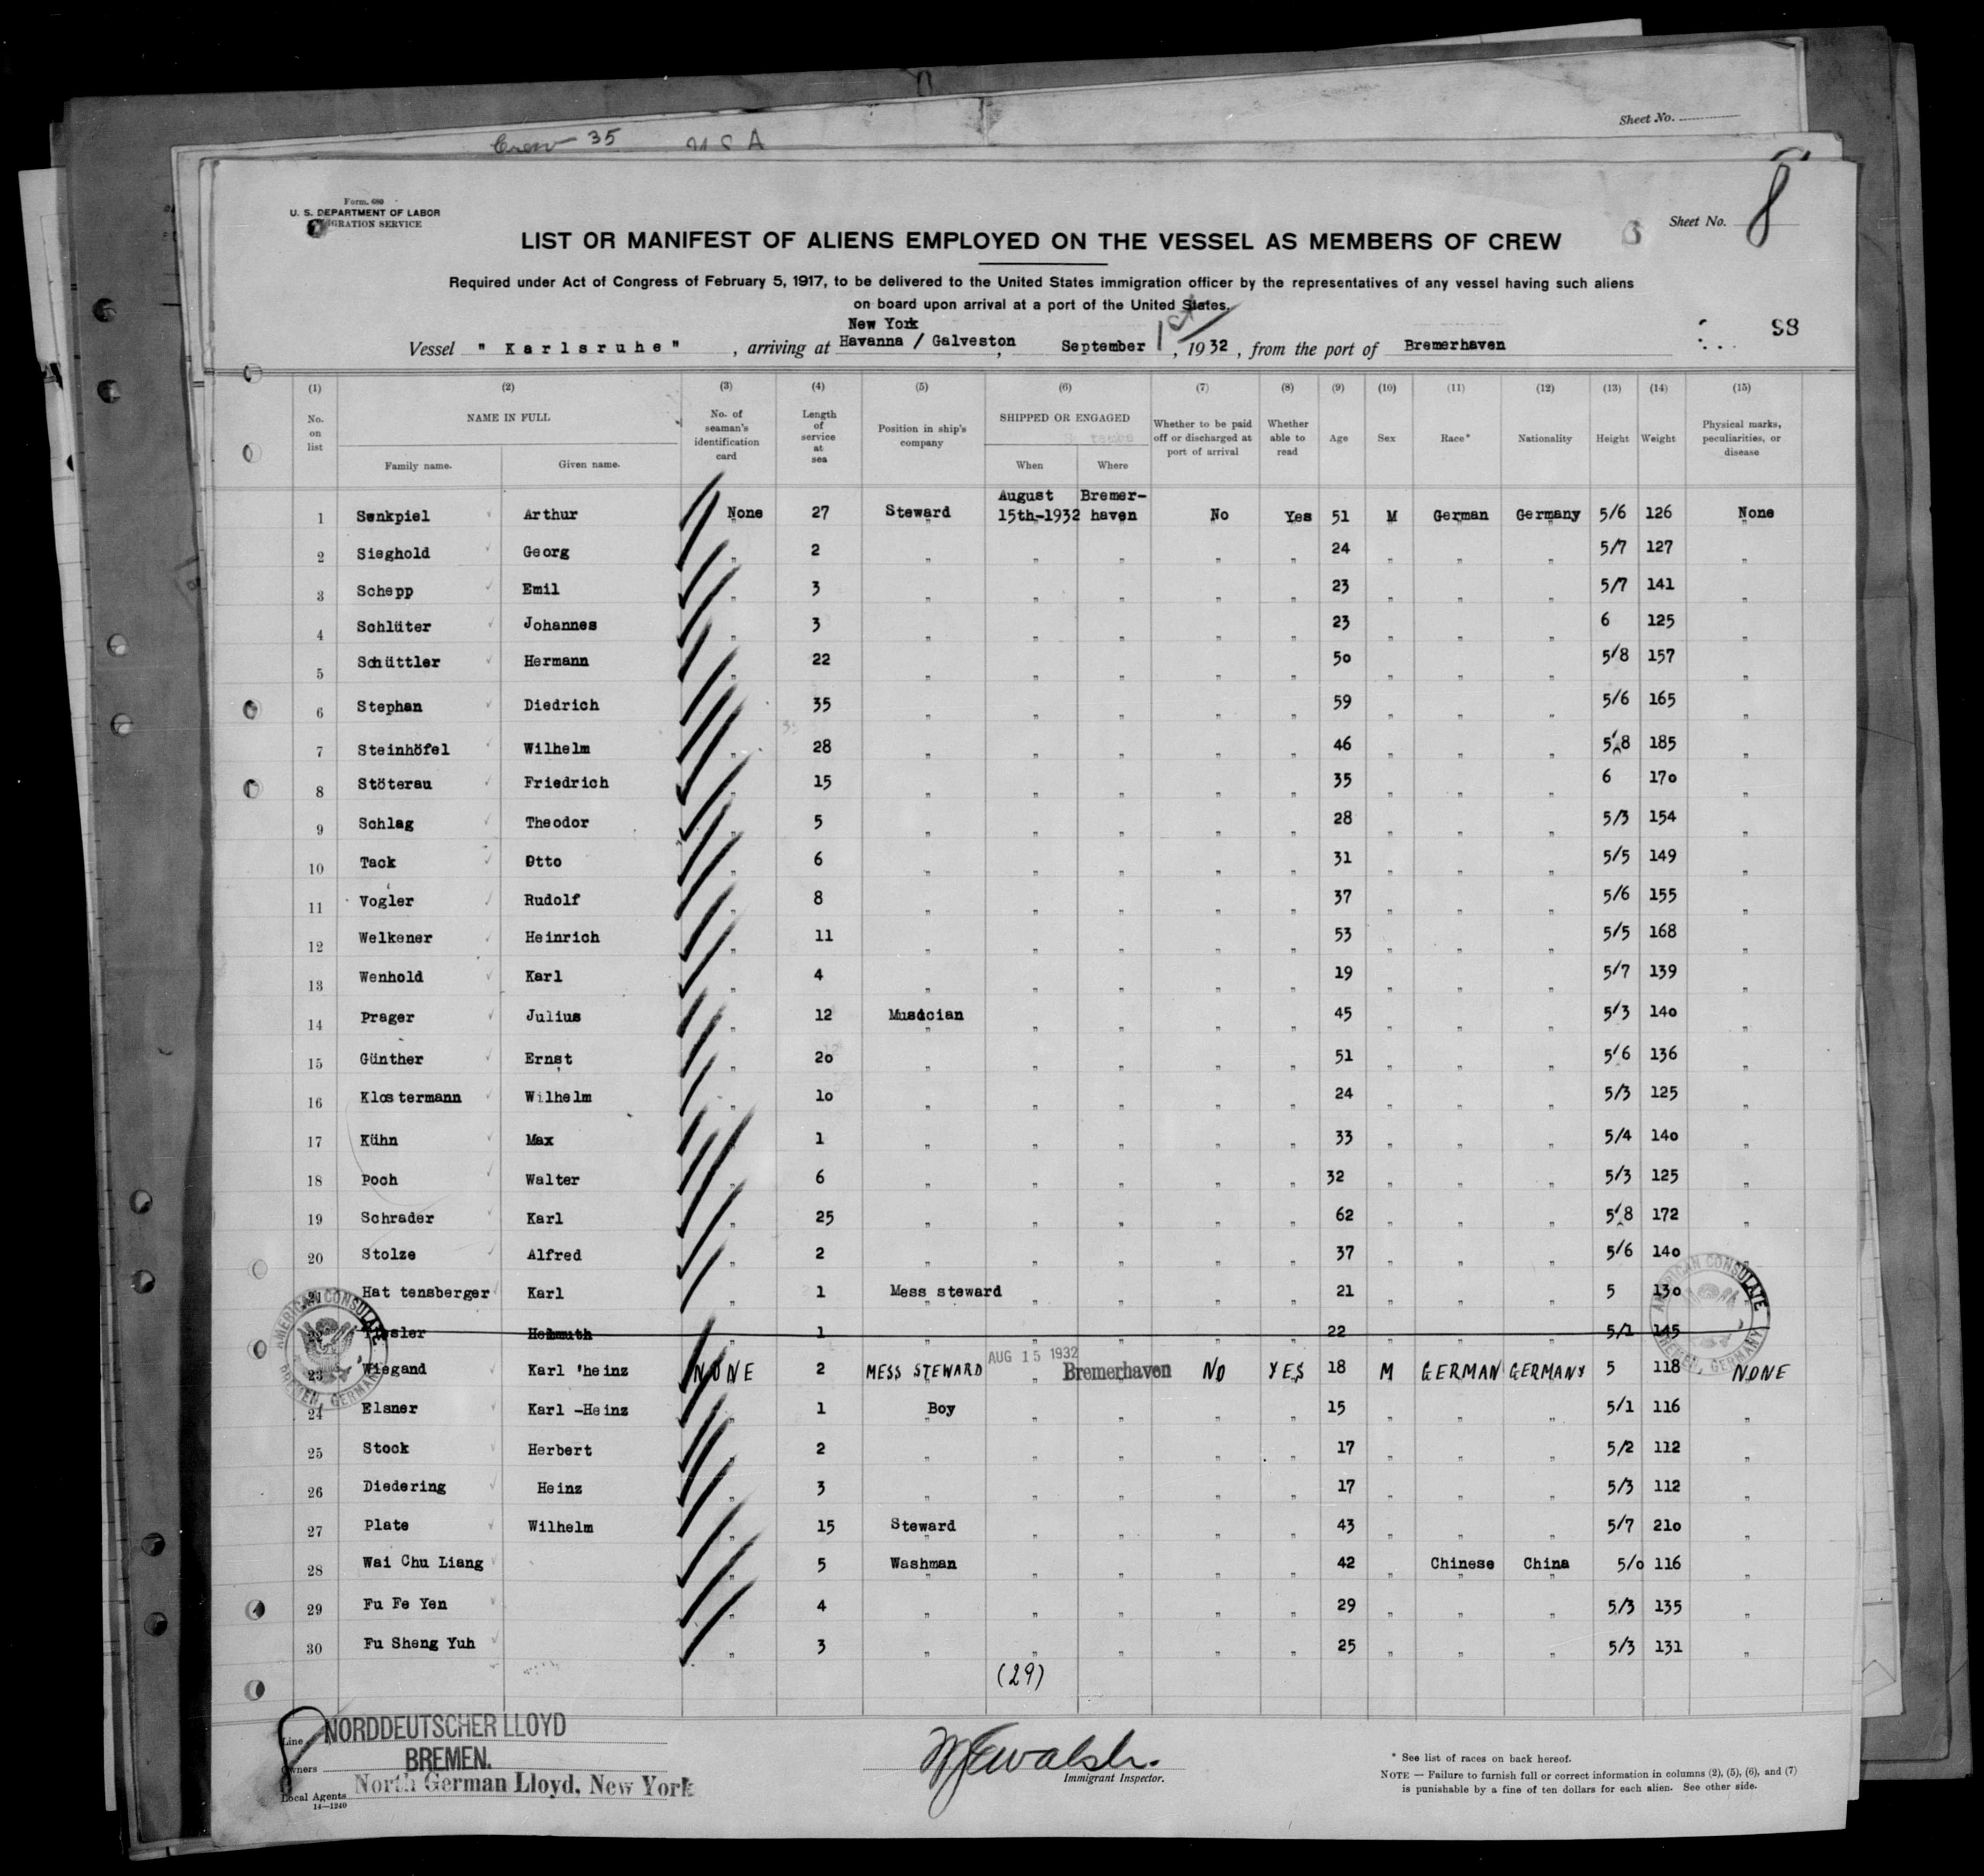 Sheet No.
Crew 35 U S A
Form. 680
U. S. DEPARTMENT OF LABOR
IGRATION SERVICE
Sheet No. 8
LIST OR MANIFEST OF ALIENS EMPLOYED ON THE VESSEL AS MEMBERS OF CREW
Required under Act of Congress of February 5, 1917, to be delivered to the United States immigration officer by the representatives of any vessel having such aliens
on board upon arrival at a port of the United States.
New York
Vessel " Karlsruhe " , arriving at Havanna / Galveston , September 1st , 1932 , from the port of Bremerhaven
98
(1) (2) (3) (4) (5) (6) (7) (8) (9) (10) (11) (12) (13) (14) (15)
No. on list NAME IN FULL Family name. Given name. No. of seaman's identification card Length of service at sea Position in ship's company SHIPPED OR ENGAGED When Where Whether to be paid off or discharged at port of arrival Whether able to read Age Sex Race* Nationality Height Weight Physical marks, peculiarities, or disease
1 Senkpiel Arthur None 27 Steward August 15th-1932 Bremer-haven No Yes 51 M German Germany 5/6 126 None
2 Sieghold Georg " 2 " " " " " 24 " " " 5/7 127 "
3 Schepp Emil " 3 " " " " " 23 " " " 5/7 141 "
4 Schlüter Johannes " 3 " " " " " 23 " " " 6 125 "
5 Schüttler Hermann " 22 " " " " " 50 " " " 5/8 157 "
6 Stephan Diedrich " 35 " " " " " 59 " " " 5/6 165 "
7 Steinhöfel Wilhelm " 28 " " " " " 46 " " " 5/8 185 "
8 Stöterau Friedrich " 15 " " " " " 35 " " " 6 170 "
9 Schlag Theodor " 5 " " " " " 28 " " " 5/3 154 "
10 Tack Otto " 6 " " " " " 31 " " " 5/5 149 "
11 Vogler Rudolf " 8 " " " " " 37 " " " 5/6 155 "
12 Welkener Heinrich " 11 " " " " " 53 " " " 5/5 168 "
13 Wenhold Karl " 4 " " " " " 19 " " " 5/7 139 "
14 Prager Julius " 12 Musician " " " " 45 " " " 5/3 140 "
15 Günther Ernst " 20 " " " " " 51 " " " 5/6 136 "
16 Klostermann Wilhelm " 10 " " " " " 24 " " " 5/3 125 "
17 Kühn Max " 1 " " " " " 33 " " " 5/4 140 "
18 Poch Walter " 6 " " " " " 32 " " " 5/3 125 "
19 Schrader Karl " 25 " " " " " 62 " " " 5/8 172 "
20 Stolze Alfred " 2 " " " " " 37 " " " 5/6 140 "
21 Hattensberger Karl " 1 Mess steward " " " " 21 " " " 5 130 "
22 Helmuth " 1 " " " " " 22 " " " 5/1 145 "
23 Wiegand Karl 'heinz NONE 2 MESS STEWARD AUG 15 1932 Bremerhaven NO YES 18 M GERMAN GERMANY 5 118 NONE
24 Elsner Karl-Heinz " 1 Boy " " " " 15 " " " 5/1 116 "
25 Stock Herbert " 2 " " " " " 17 " " " 5/2 112 "
26 Diedering Heinz " 3 " " " " " 17 " " " 5/3 112 "
27 Plate Wilhelm " 15 Steward " " " " 43 " " " 5/7 210 "
28 Wai Chu Liang " 5 Washman " " " " 42 " Chinese China 5/0 116 "
29 Fu Fe Yen " 4 " " " " " 29 " " " 5/3 135 "
30 Fu Sheng Yuh " 3 " " " " " 25 " " " 5/3 131 "
(29)
AMERICAN CONSULATE BREMEN, GERMANY
AMERICAN CONSULATE BREMEN, GERMANY
8
Line NORDDEUTSCHER LLOYD
Owners BREMEN.
Local Agents North German Lloyd, New York
14—1240
Walsh.
Immigrant Inspector.
* See list of races on back hereof.
NOTE — Failure to furnish full or correct information in columns (2), (5), (6), and (7)
is punishable by a fine of ten dollars for each alien. See other side.